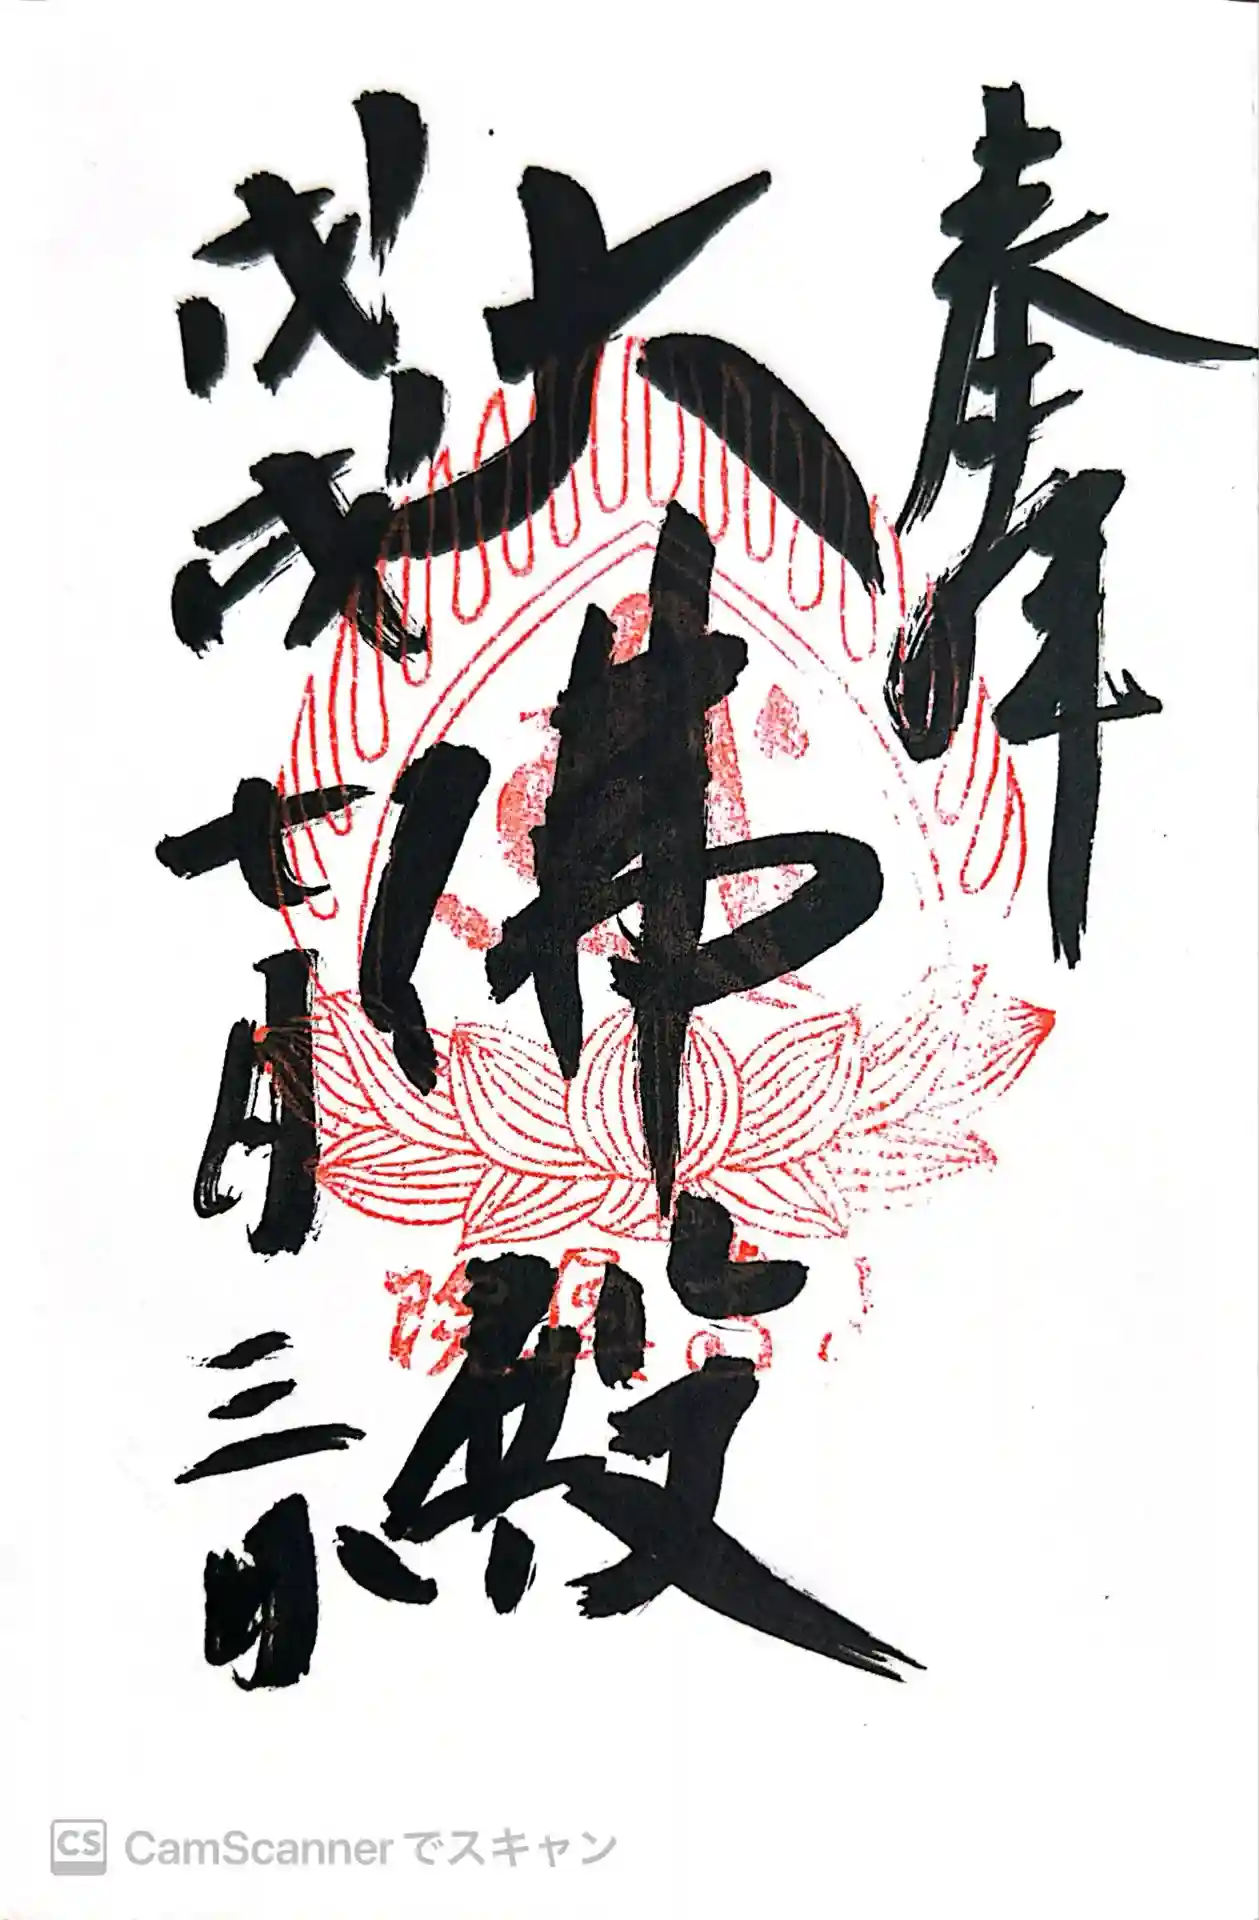 奉拝
大佛殿
戊戌七月三日
CS CamScannerでスキャン